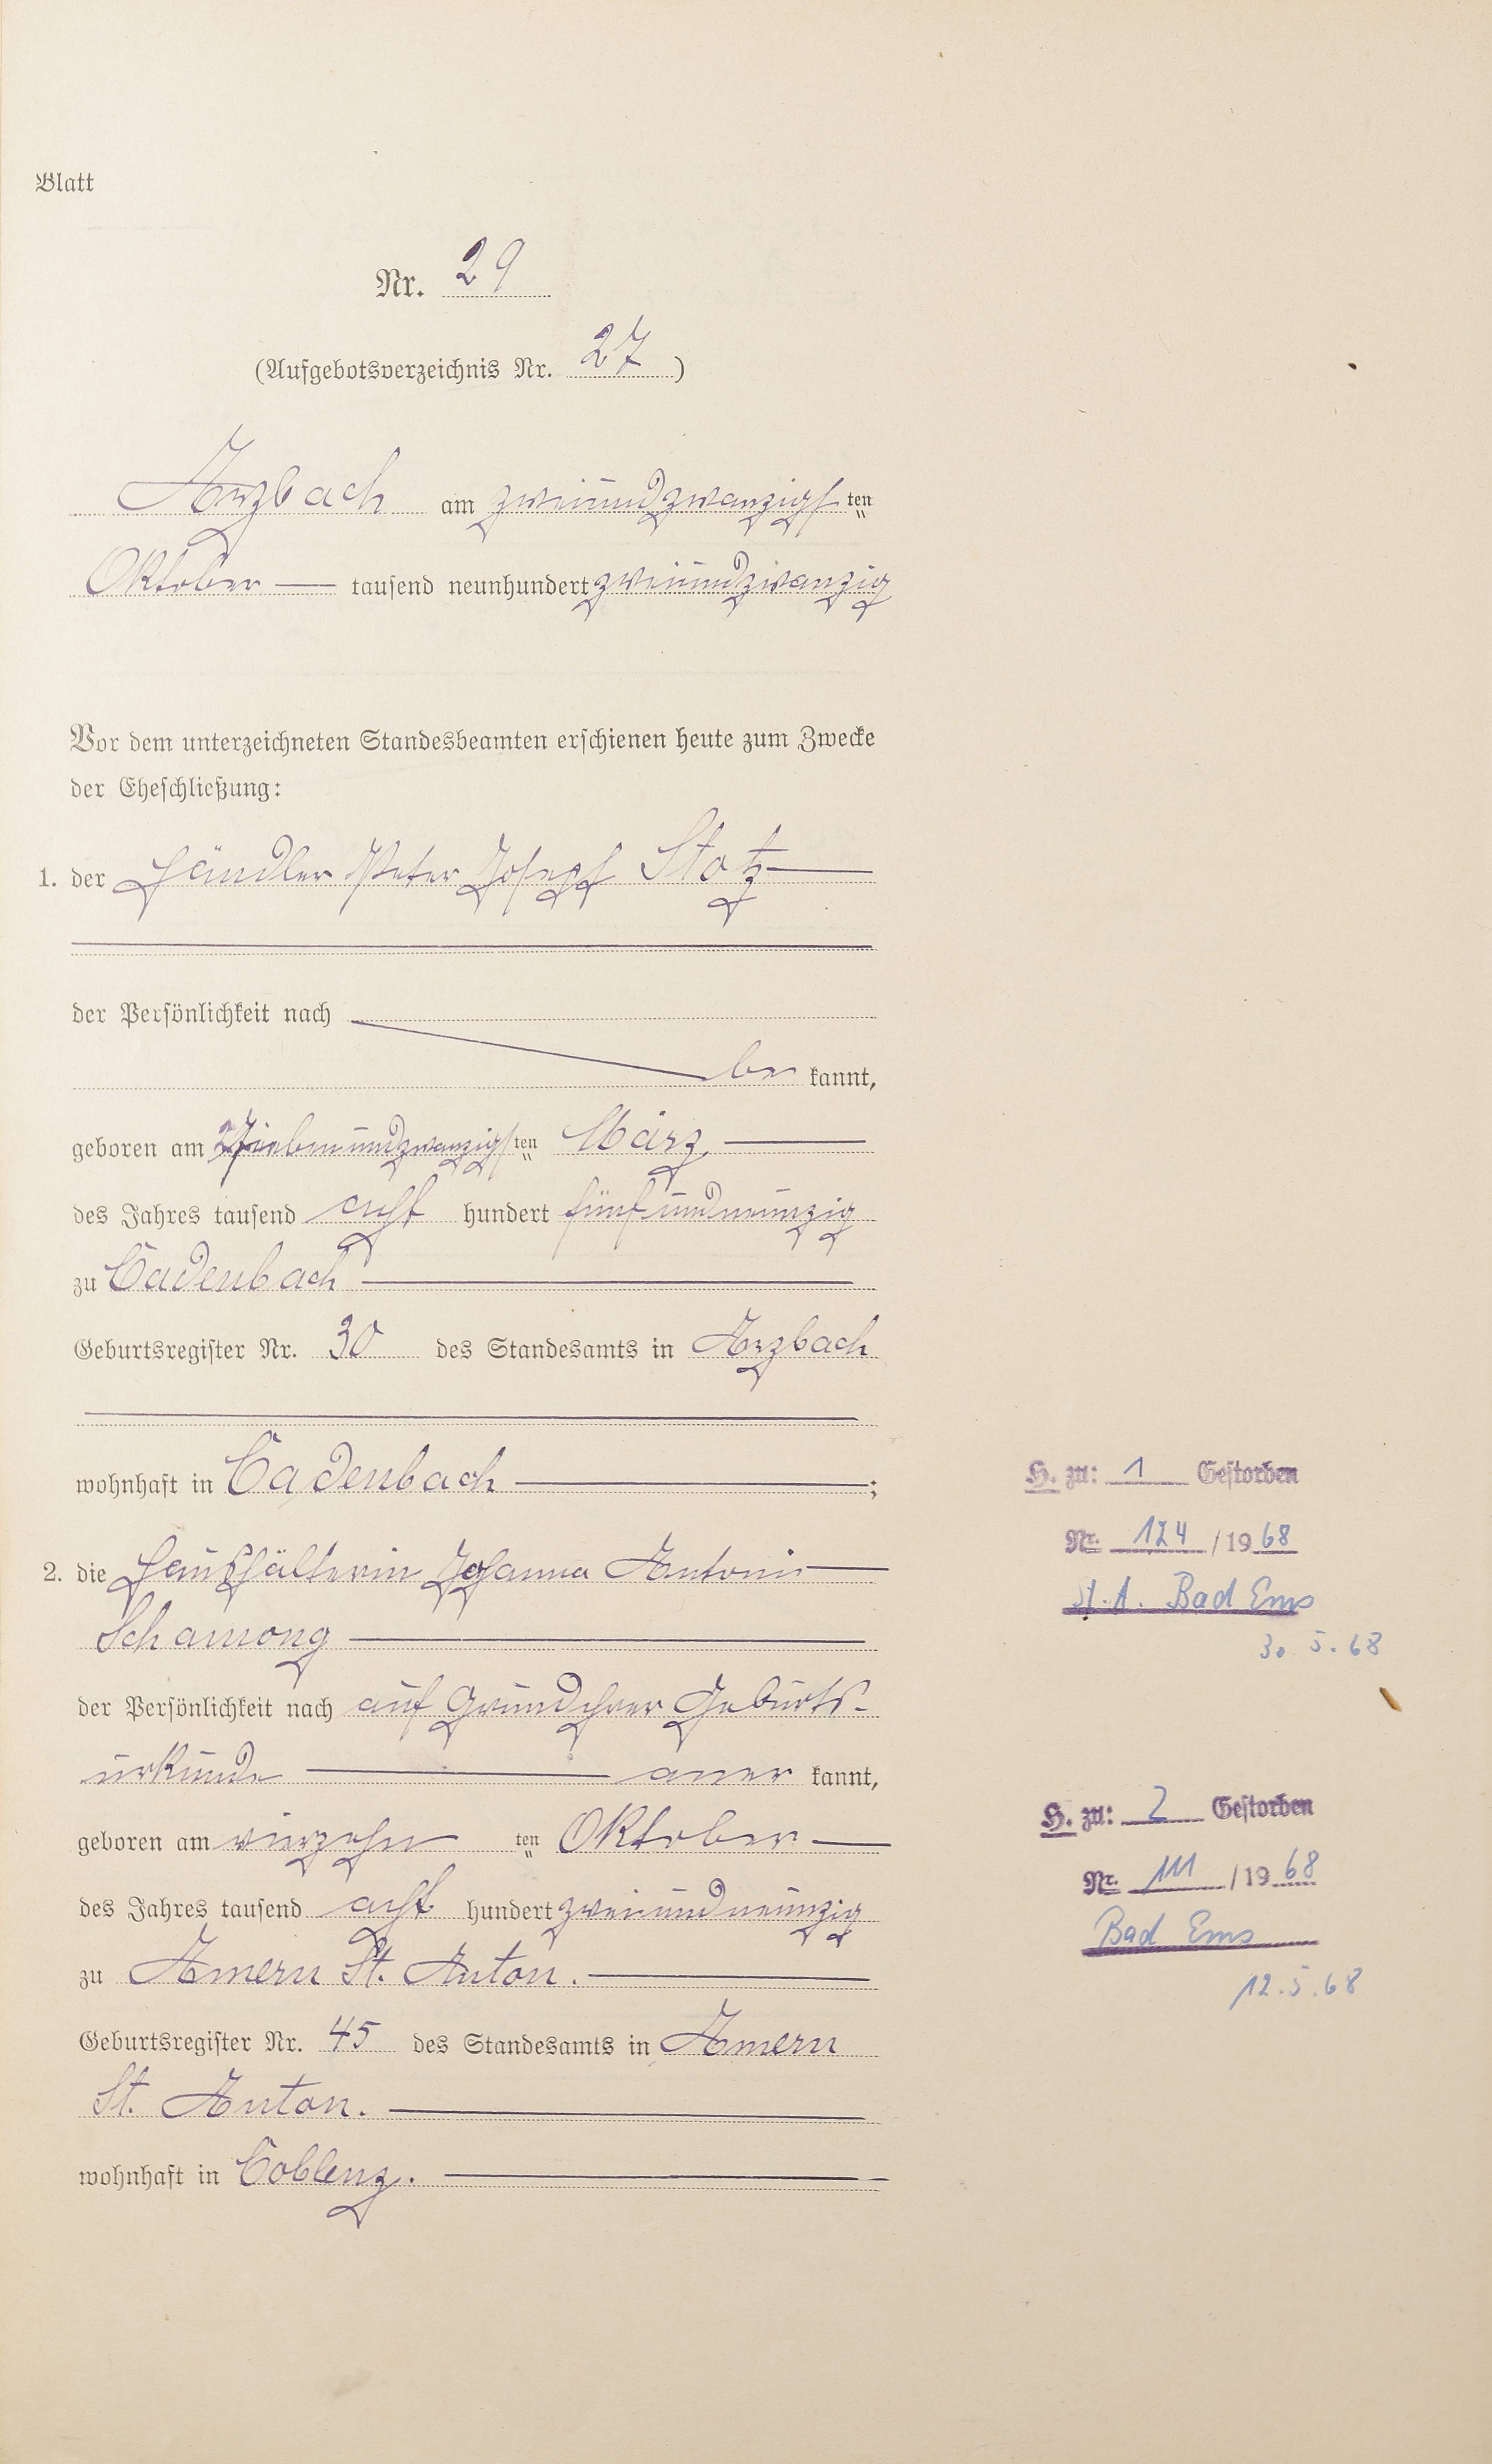 Blatt
Nr. 29
(Aufgebotsverzeichnis Nr. 27)
Arzbach am zweiundzwanzigsten
Oktober tausend neunhundert zweiundzwanzig
Vor dem unterzeichneten Standesbeamten erschienen heute zum Zwecke
der Eheschließung:
1. der Händler Peter Josef Stotz
der Persönlichkeit nach
be kannt,
geboren am siebenundzwanzigsten März
des Jahres tausend acht hundert fünfundneunzig
zu Cadenbach
Geburtsregister Nr. 30 des Standesamts in Arzbach
wohnhaft in Cadenbach ;
2. die Haushälterin Johanna Antonie
Schamong
der Persönlichkeit nach auf Grund ihrer Geburts-
urkunde aner kannt,
geboren am vierzehn ten Oktober
des Jahres tausend acht hundert zweiundneunzig
zu Amern St. Anton.
Geburtsregister Nr. 45 des Standesamts in Amern
St. Anton.
wohnhaft in Coblenz.
H. zu: 1 Gestorben
Nr. 124 / 1968
St. A. Bad Ems
30. 5. 68
H. zu: 2 Gestorben
Nr. 111 / 1968
Bad Ems
12. 5. 68